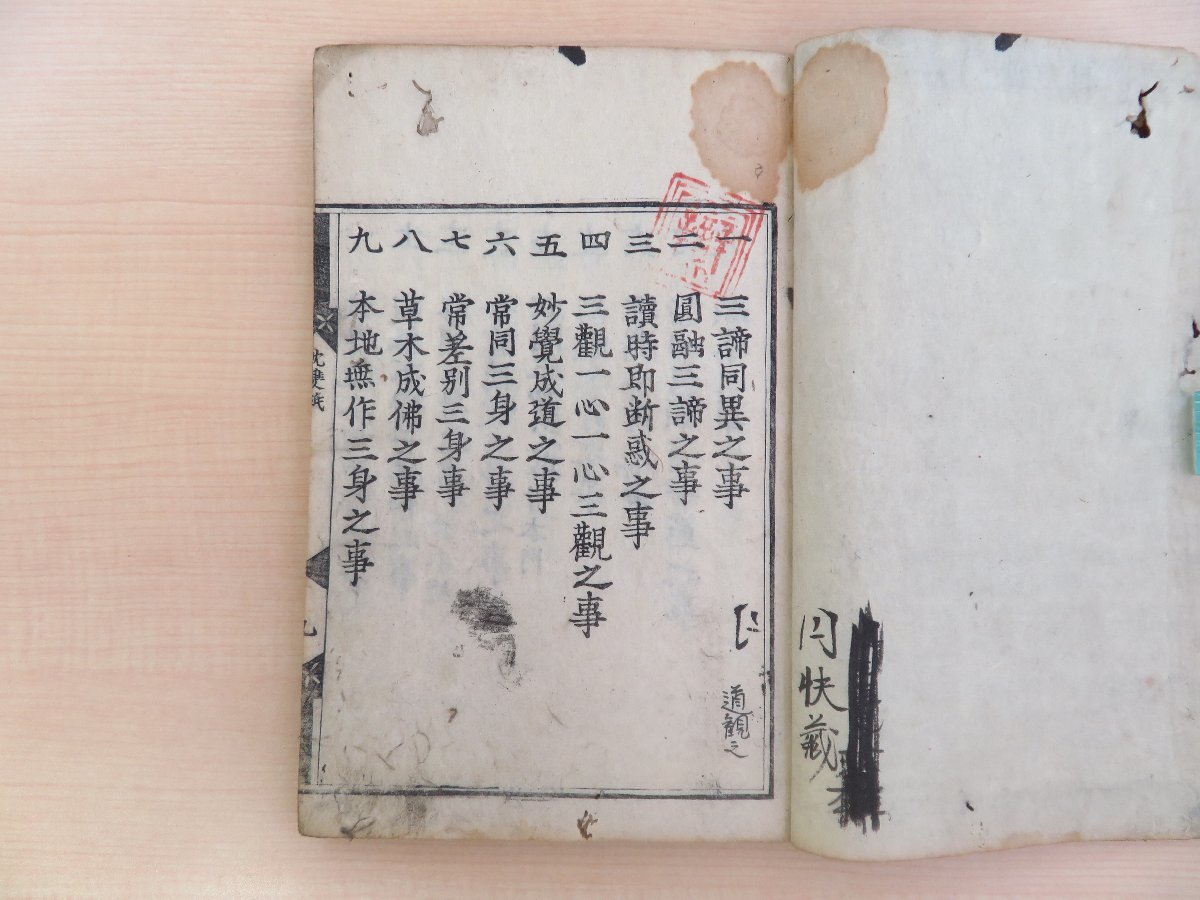 円快藏
一 三諦同異之事
二 圓融三諦之事
三 讀時即断惑之事
四 三觀一心一心三觀之事
五 妙覺成道之事
六 常同三身之事
七 常差别三身事
八 草木成佛之事
九 本地無作三身之事
道觀之
枕雙紙